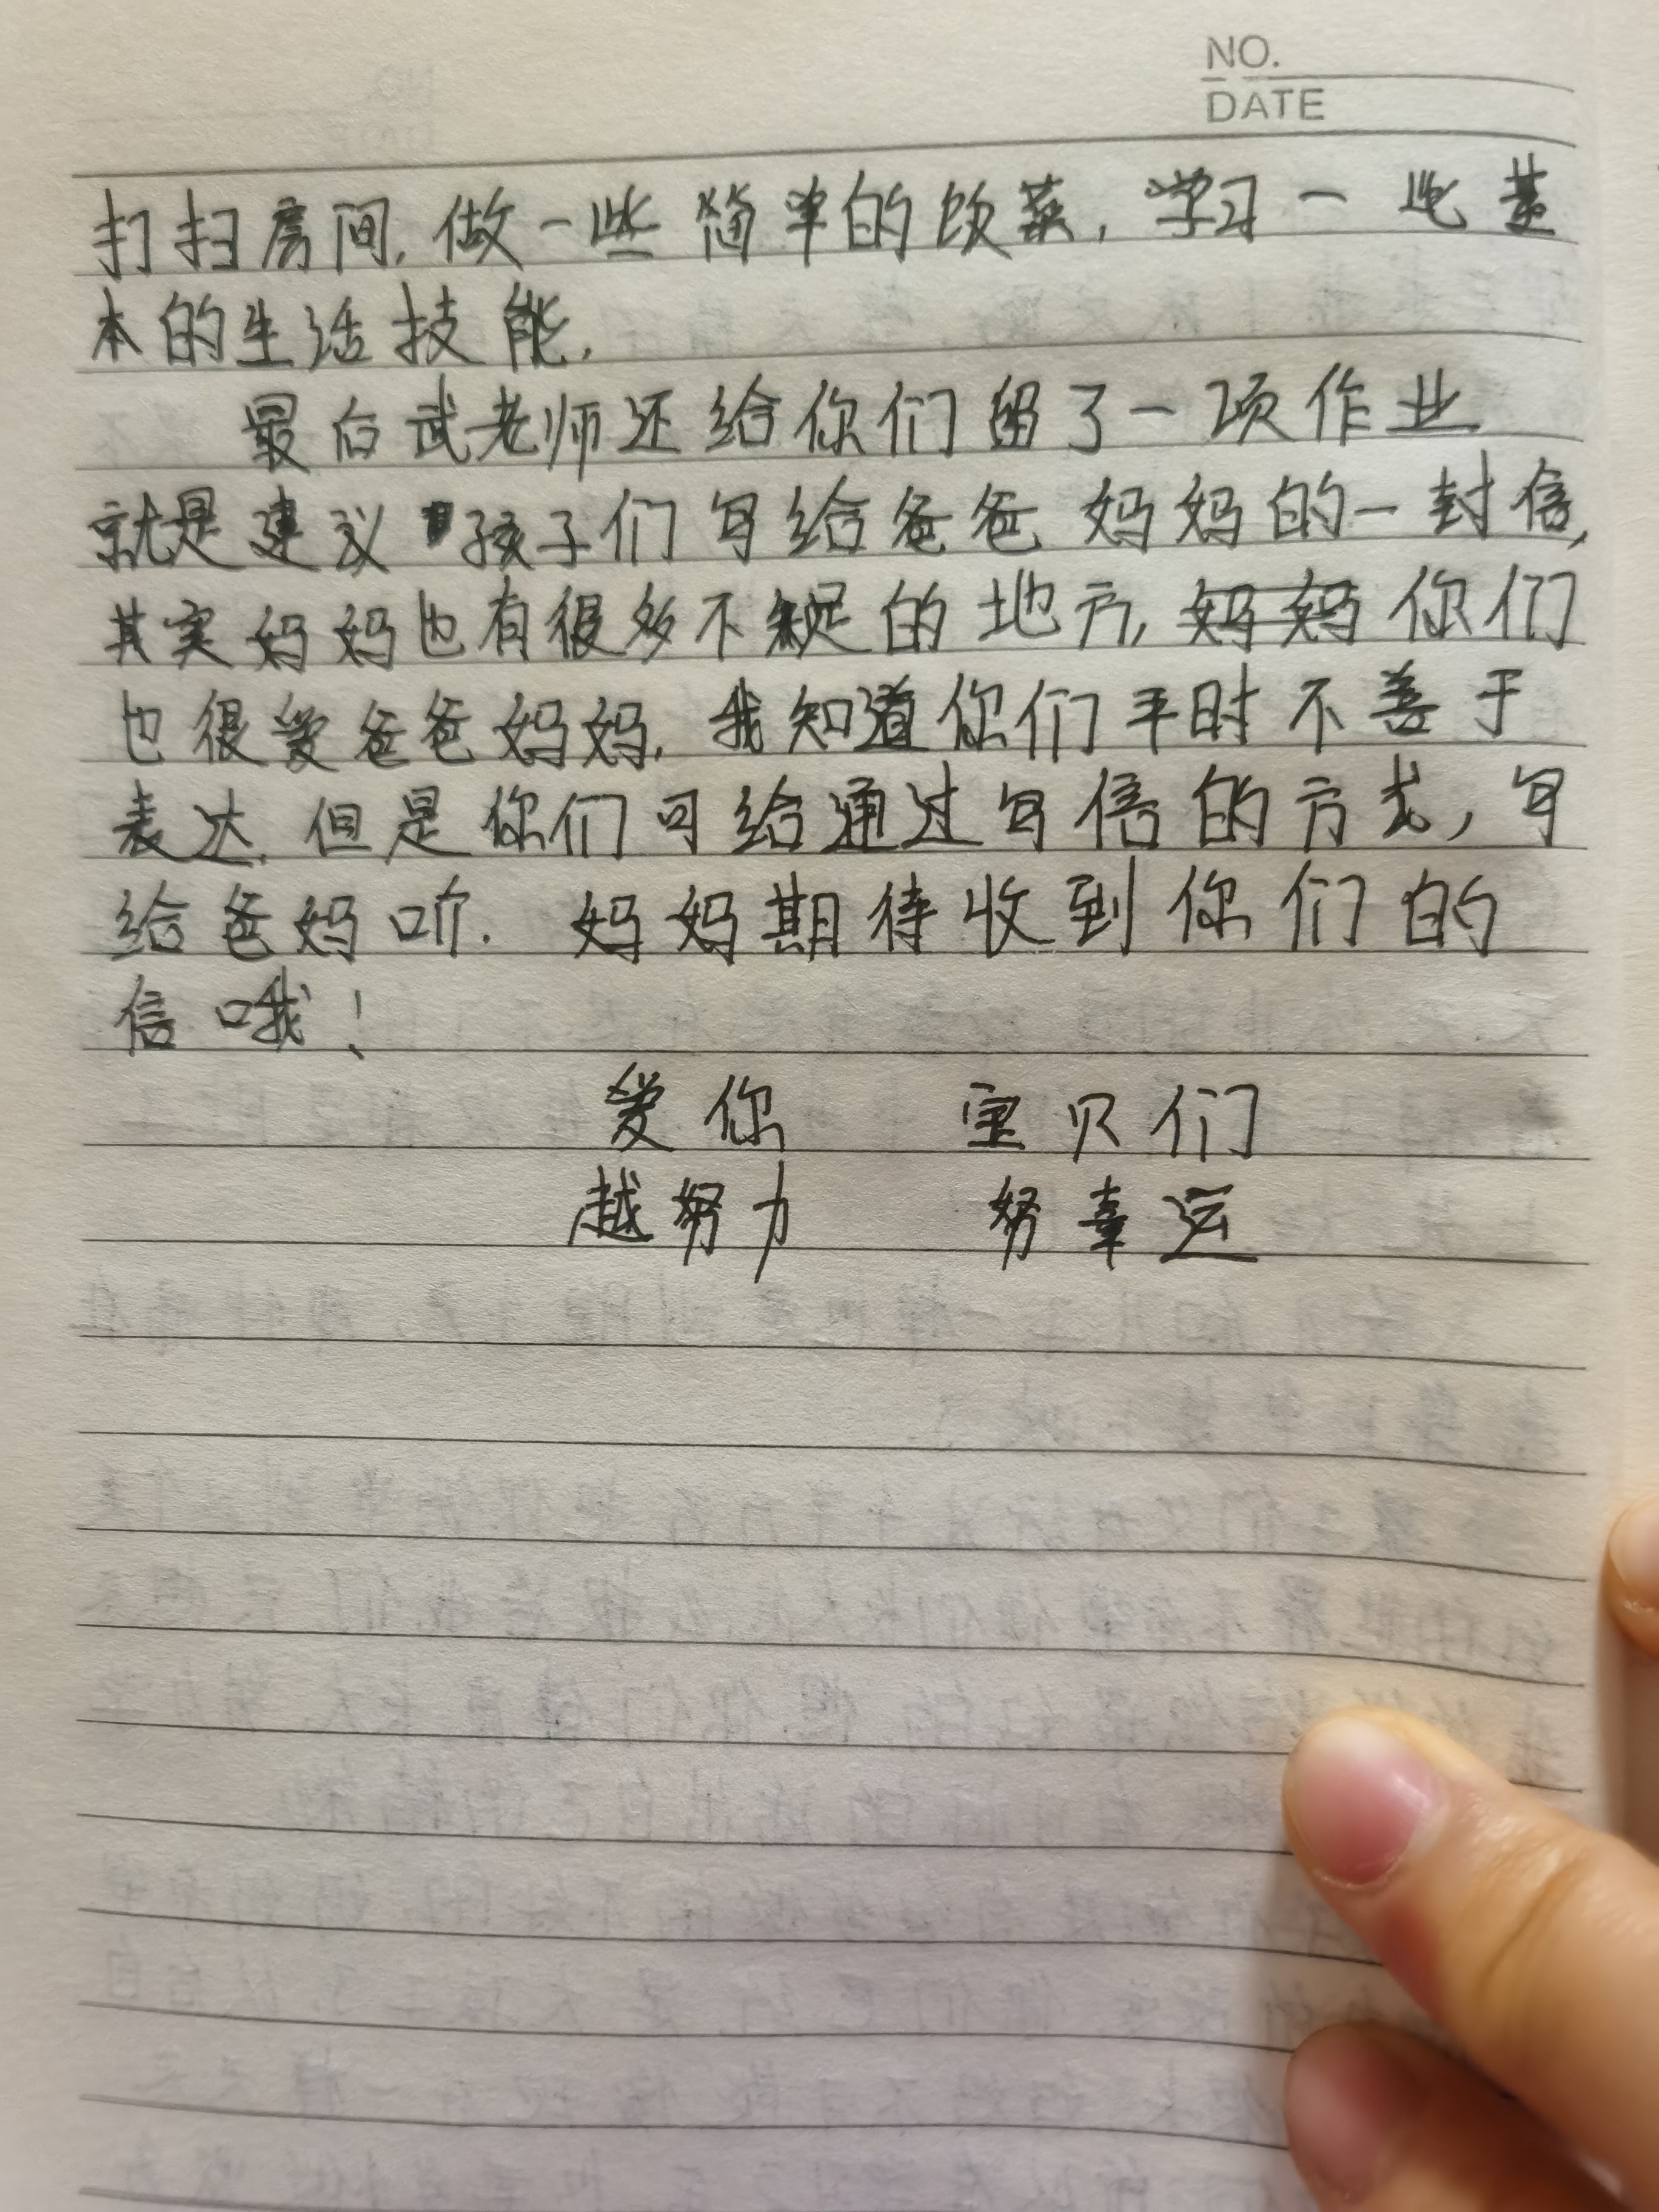 NO.
DATE
打扫房间,做一些简单的饭菜,学习一些基
本的生活技能.
最后武老师还给你们留了一项作业
就是建议孩子们写给爸爸妈妈的一封信,
其实妈妈也有很多不足的地方,妈妈你们
也很爱爸爸妈妈.我知道你们平时不善于
表达.但是你们可给通过写信的方式,写
给爸妈听.妈妈期待收到你们的
信哦!
爱你 宝贝们
越努力 努幸运